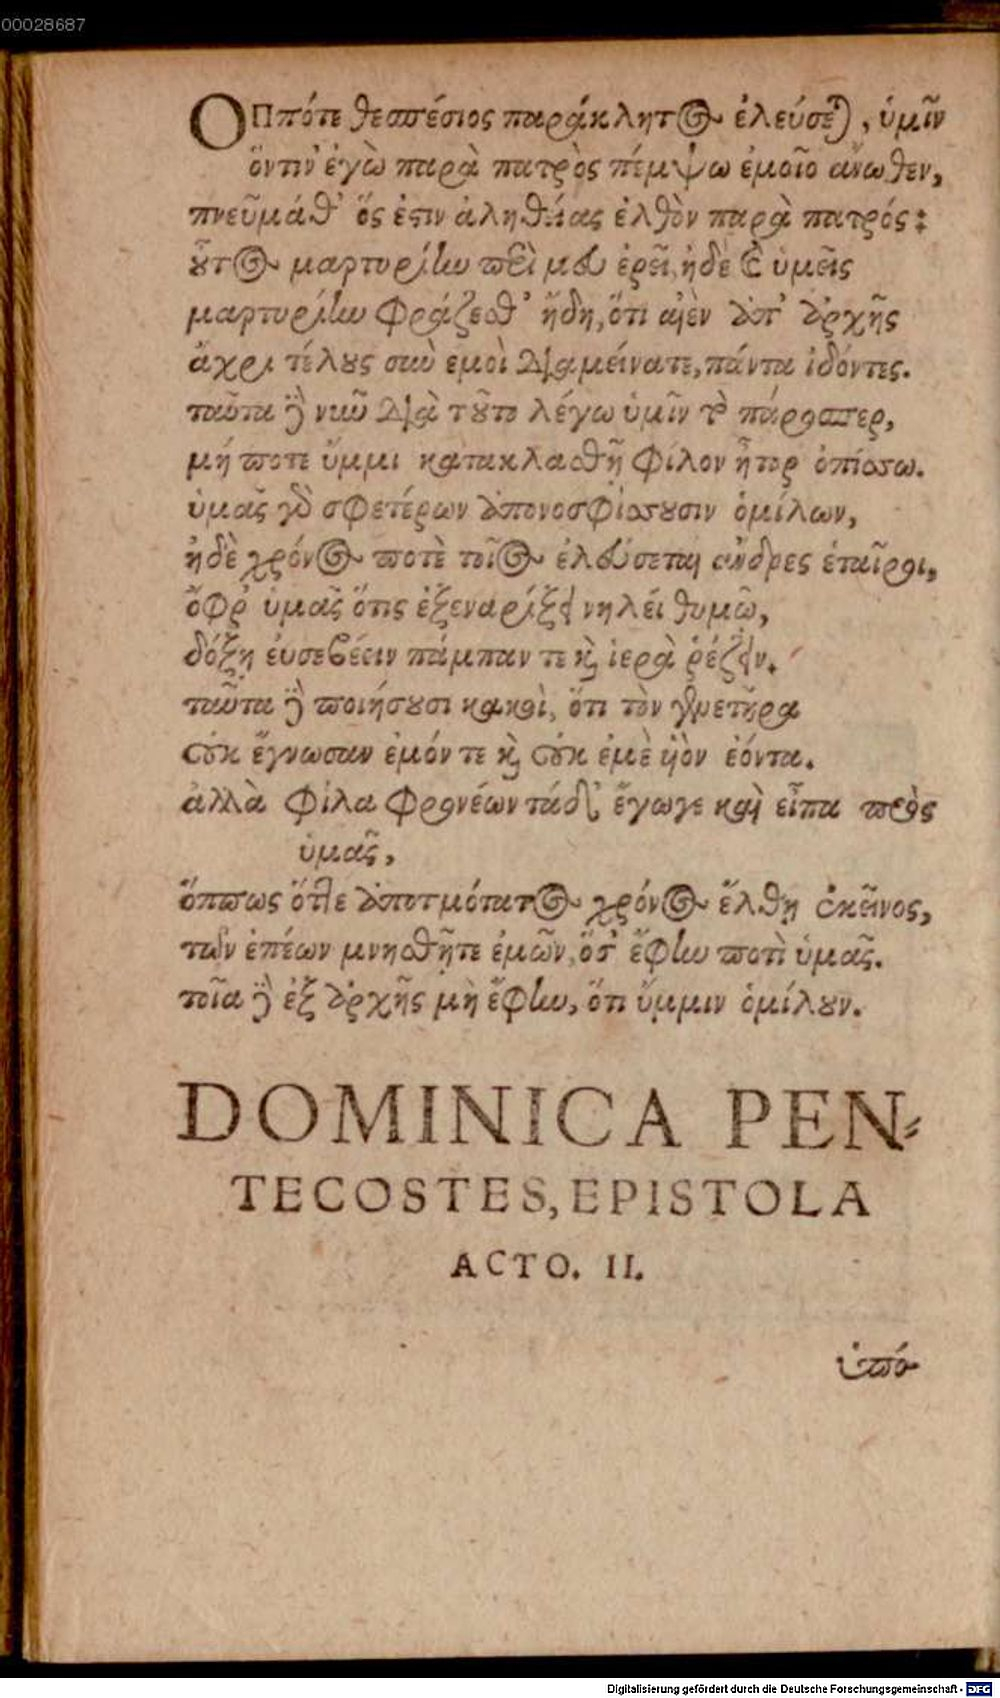 00028687
Οππότε θεσπέσιος παράκλητος ἐλεύσεται, ὑμῖν
ὅντιν' ἐγὼ παρὰ πατρὸς πέμψω ἐμοῖο ἄνωθεν,
πνεῦμά θ' ὅς ἐστιν ἀληθείας ἐλθὸν παρὰ πατρός:
οὗτος μαρτυρίην περὶ μευ ἐρεῖ, ἠδὲ καὶ ὑμεῖς
μαρτυρίην φράζεσθ' ἤδη, ὅτι αἰὲν ἀπ' ἀρχῆς
ἄχρι τέλους σὺν εμοὶ διαμείνατε, πάντα ἰδόντες.
ταῦτα δὲ νῦν διὰ τοῦτο λέγω ὑμῖν τὸ πάροσπερ,
μή ποτε ὔμμι κατακλασθῇ φίλον ἦτορ ὀπίσσω.
ὑμᾶς γὰρ σφετέρων ἀπονοσφίσσουσιν ὁμίλων,
ἠδὲ χρόνος ποτὲ τοῖος ἐλεύσεται ἄνδρες ἑταῖροι,
ὄφρ' ὑμᾶς ὅτις ἐξεναρίξει νηλέι θυμῶ,
δόξῃ ἐυσεβέειν πάμπαν τε καὶ ἱερὰ ῥέζειν.
ταῦτα δὲ ποιήσουσι κακοὶ, ὅτι τὸν γενετῆρα
οὐκ ἔγνωσαν ἐμόν τε καὶ οὐκ ἐμὲ υἱὸν ἐόντα.
ἀλλὰ φίλα φρονέων τάδ' ἔγωγε καὶ εἶπα πρὸς
ὑμᾶς,
ὅππως ὅττε ἀποτμότατος χρόνος ἔλθῃ ἐκεῖνος,
τῶν ἐπέων μνησθῆτε ἐμῶν, ὅσ' ἔφην ποτὶ ὑμᾶς.
τοῖα δὲ ἐξ ἀρχῆς μὴ ἔφην, ὅτι ὔμμιν ὁμίλουν.
DOMINICA PEN-
TECOSTES, EPISTOLA
ACTO. II.
ὑπό
Digitalisierung gefördert durch die Deutsche Forschungsgemeinschaft - DFG